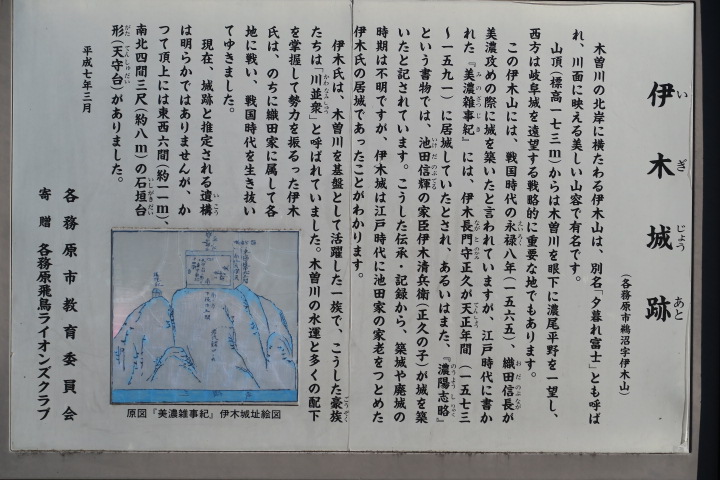 伊木城跡
いぎじょうあと
(各務原市鵜沼字伊木山)
木曽川の北岸に横たわる伊木山は、別名「夕暮れ富士」とも呼ば
れ、川面に映える美しい山容で有名です。
山頂(標高一七三m)からは木曽川を眼下に濃尾平野を一望し、
西方は岐阜城を遠望する戦略的に重要な地でもあります。
この伊木山には、戦国時代の永禄八年(一五六五)、織田信長が
美濃攻めの際に城を築いたと言われていますが、江戸時代に書か
れた『美濃雑事紀』には、伊木長門守正久が天正年間(一五七三
〜一五九一)に居城していたとされ、あるいはまた、『濃陽志略』
という書物では、池田信輝の家臣伊木清兵衛(正久の子)が城を築
いたと記されています。こうした伝承・記録から、築城や廃城の
時期は不明ですが、伊木城は江戸時代に池田家の家老をつとめた
伊木氏の居城であったことがわかります。
伊木氏は、木曽川を基盤として活躍した一族で、こうした豪族
たちは「川並衆」と呼ばれていました。木曽川の水運と多くの配下
を掌握して勢力を振るった伊木
氏は、のちに織田家に属して各
地に戦い、戦国時代を生き抜い
てゆきました。
現在、城跡と推定される遺構
は明らかではありませんが、か
つて頂上には東西六間(約一一m)、
南北四間三尺(約八m)の石垣台
形(天守台)がありました。
平成七年三月
各務原市教育委員会
寄贈 各務原飛鳥ライオンズクラブ
原図『美濃雑事紀』伊木城址絵図